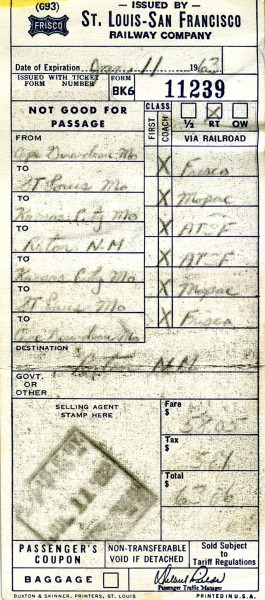 (693) — ISSUED BY —
FRISCO ST. LOUIS-SAN FRANCISCO
RAILWAY COMPANY
Date of Expiration 11 1963
ISSUED WITH TICKET
FORM NUMBER
FORM
BK6
11239
NOT GOOD FOR
PASSAGE
CLASS
FIRST
COACH
½ RT OW
VIA RAILROAD
FROM
Cape Girardeau Mo X Frisco
TO
St Louis Mo X Mopac
TO
Kansas City Mo X AT-F
TO
Raton N.M X AT-F
TO
Kansas City Mo X Mopac
TO
St Louis Mo X Frisco
TO
Cape Girardeau Mo
DESTINATION
Raton N M
GOVT.
OR
OTHER
SELLING AGENT
STAMP HERE
Fare
$
Tax
$
Total
$
PASSENGER'S
COUPON
NON-TRANSFERABLE
VOID IF DETACHED
Sold Subject
to
Tariff Regulations
BAGGAGE
Passenger Traffic Manager
BUXTON & SKINNER, PRINTERS, ST. LOUIS PRINTED IN U.S.A.